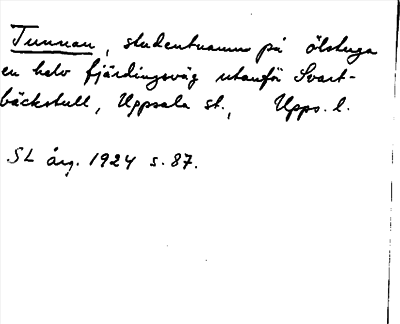 Tunnan, studentnamn på ölstuga
en halv fjärdingsväg utanför Svart-
bäckstull, Uppsala st., Upps. l.
SL årg. 1924 s. 87.